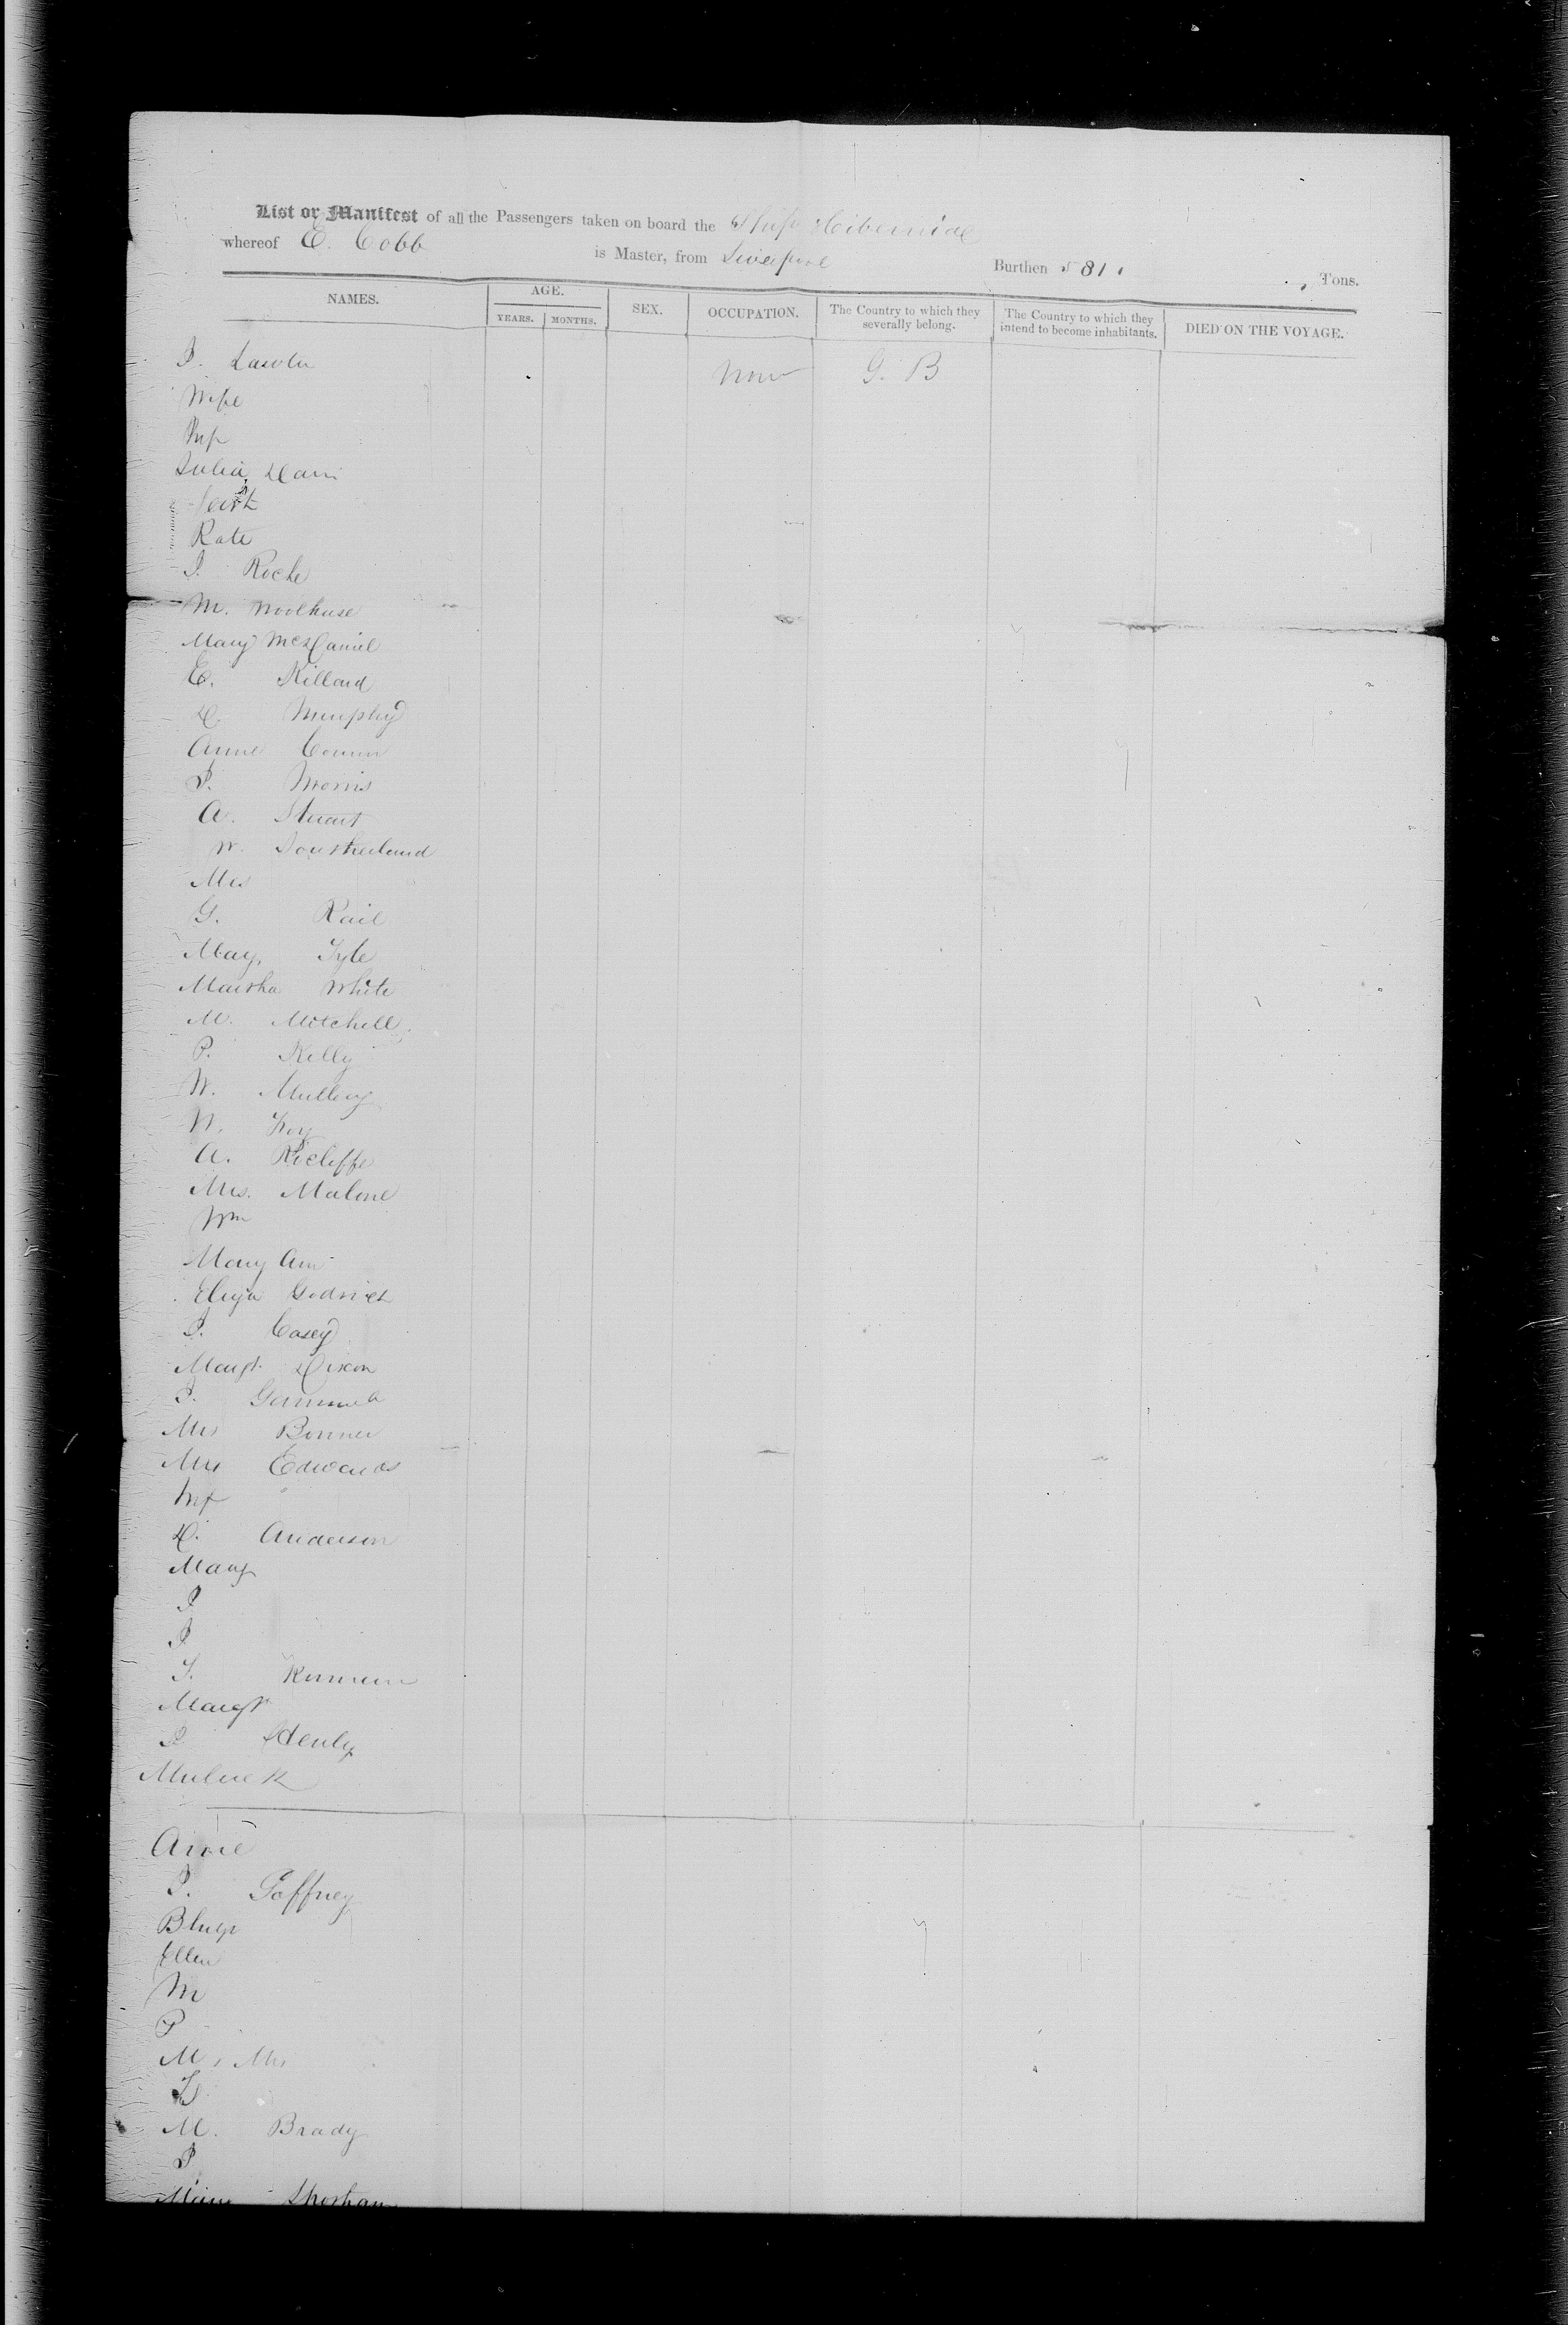 List or Manifest of all the Passengers taken on board the Ship Hibernia
whereof E. Cobb is Master, from Liverpool Burthen 581 Tons.
NAMES. AGE. SEX. OCCUPATION. The Country to which they severally belong. The Country to which they intend to become inhabitants. DIED ON THE VOYAGE.
YEARS. MONTHS.
J. Lawler None G. B
Wife
Inf
Julia
Kate
J. Roche
M. Woolhuse
Mary McDaniel
E. Killard
D. Murphy
Anne
J. Morris
A. Stuart
W. Southerland
Mrs
G. Rail
Mary Tyle
Martha White
M. Mitchell
P. Kelly
W. Mullery
W.
A. Ricliffe
Mrs. Malone
Wm
Mary Ann
Eliza Godrich
J. Casey
Margt. Dixon
J.
Mrs Bonner
Mrs Edwards
Inf
D. Anderson
Mary
J
J
Margt
Henly
Anne
P. Gaffney
Ellen
M
P
M. Brady
J